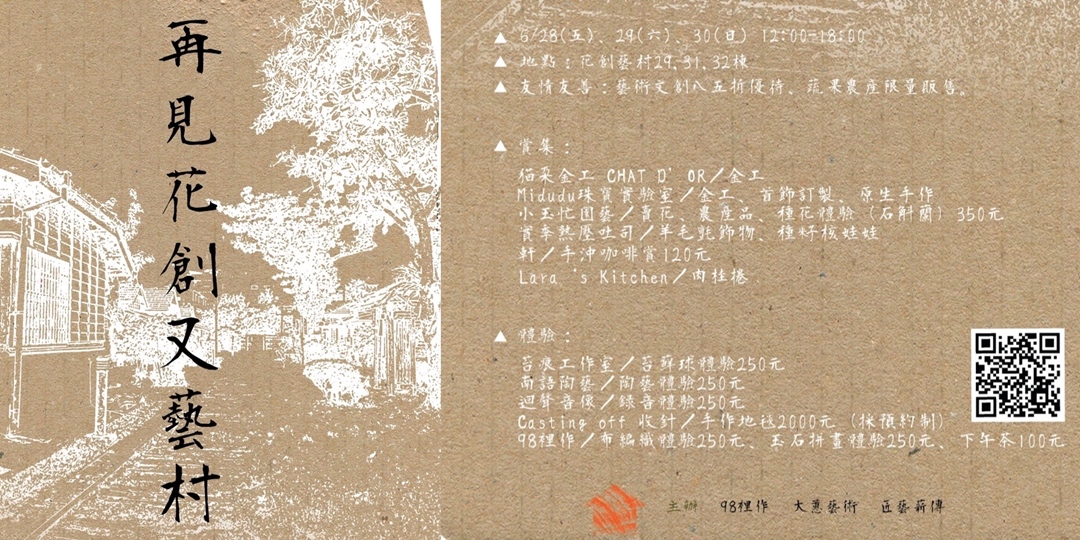 再見花創又藝村
▲ 6/28(五)、29(六)、30(日) 12:00-18:00
▲ 地點：花創藝村29.31.32棟
▲ 友情友善：藝術文創八五折優待、蔬果農產限量販售。
▲ 賞集：
貓果金工 CHAT D' OR／金工
Midudu珠寶實驗室／金工、首飾訂製、原生手作
小玉忙園藝／賣花、農產品、種花體驗（石斛蘭）350元
實季熱壓吐司／羊毛氈飾物、種籽核娃娃
軒／手沖咖啡賞120元
Lara 's Kitchen／肉桂捲
▲ 體驗：
苔痕工作室／苔蘚球體驗250元
南語陶藝／陶藝體驗250元
迴聲音像／錄音體驗250元
Casting off 收針／手作地毯2000元（採預約制）
98裡作／布編織體驗250元、玉石拼畫體驗250元、下午茶100元
主辦 98裡作 大蔥藝術 匠藝薪傳